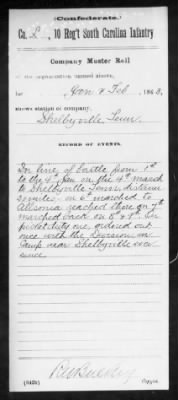 (Confederate.)
Co. L, 10 Reg't South Carolina Infantry
Company Muster Roll
of the organization named above,
for Jan & Feb, 1863.
shows station of company,
Shelbyville Tenn.
RECORD OF EVENTS.
In line of battle from 1st
to the 4th Jan on the 4th march
to Shelbyville Tenn, distance
miles. on 6th marched to
Allisonia reached there on 7th
marched back on 8 & 9th. On
picket duty one, ordered out
once with the Division in
Camp near Shelbyville
(642b)
Copyist